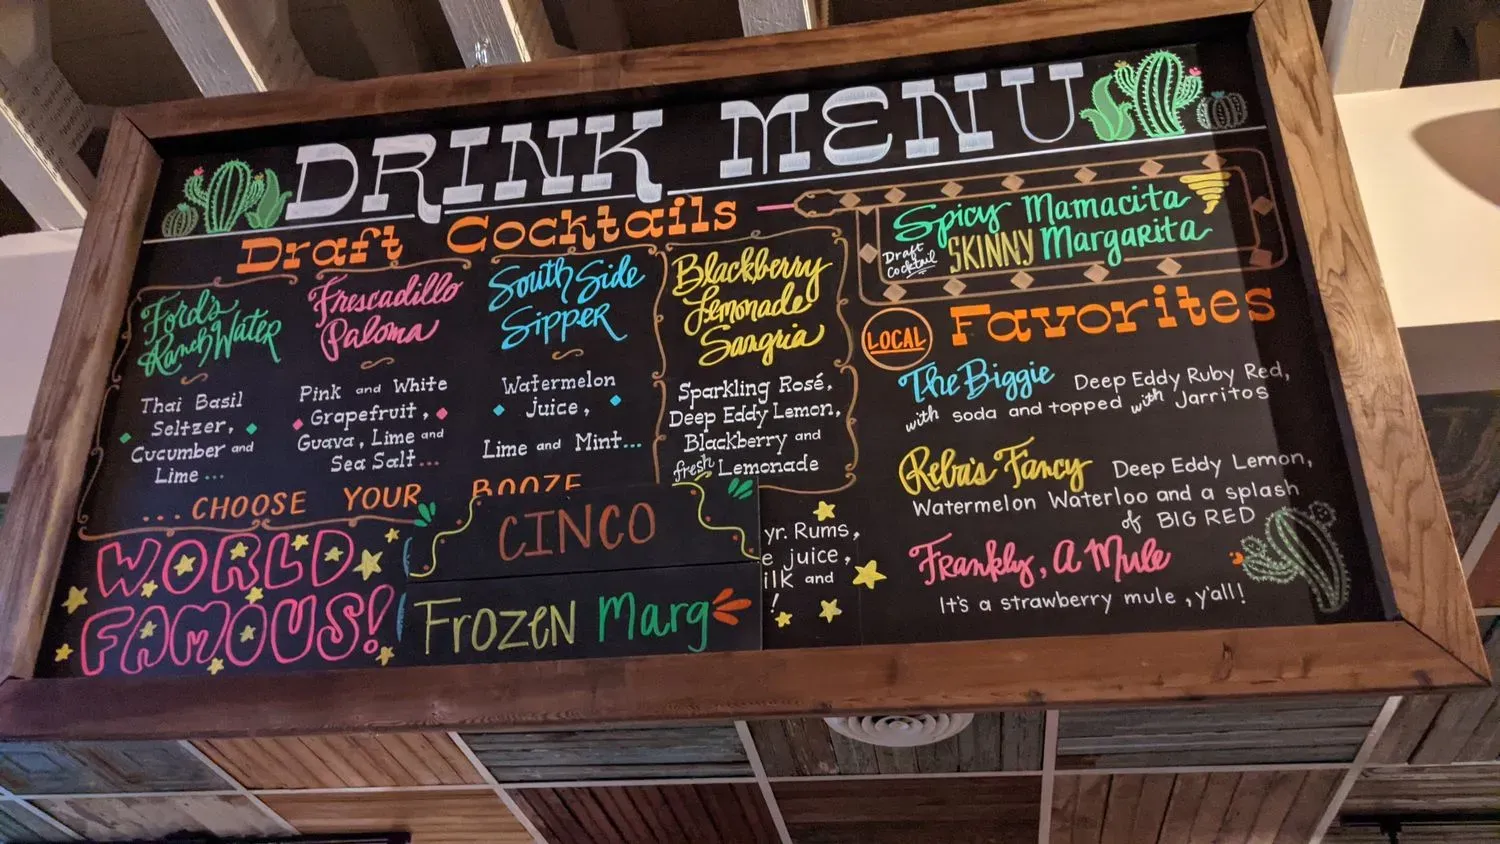 DRINK MENU
Draft Cocktails
Ford's
Ranch Water
Thai Basil
Seltzer,
Cucumber and
Lime...
Frescadillo
Paloma
Pink and White
Grapefruit,
Guava, Lime and
Sea Salt...
South Side
Sipper
Watermelon
Juice,
Lime and Mint...
...CHOOSE YOUR BOOZE
Blackberry
Lemonade
Sangria
Sparkling Rosé,
Deep Eddy Lemon,
Blackberry and
fresh Lemonade
Spicy Mamacita
Draft
Cocktail
SKINNY Margarita
LOCAL
Favorites
The Biggie Deep Eddy Ruby Red,
with soda and topped with Jarritos
Reba's Fancy Deep Eddy Lemon,
Watermelon Waterloo and a splash
of BIG RED
Frankly, A Mule
It's a strawberry mule, y'all!
WORLD
FAMOUS!
CINCO
Frozen Marg
yr. Rums,
e juice,
ilk and
!